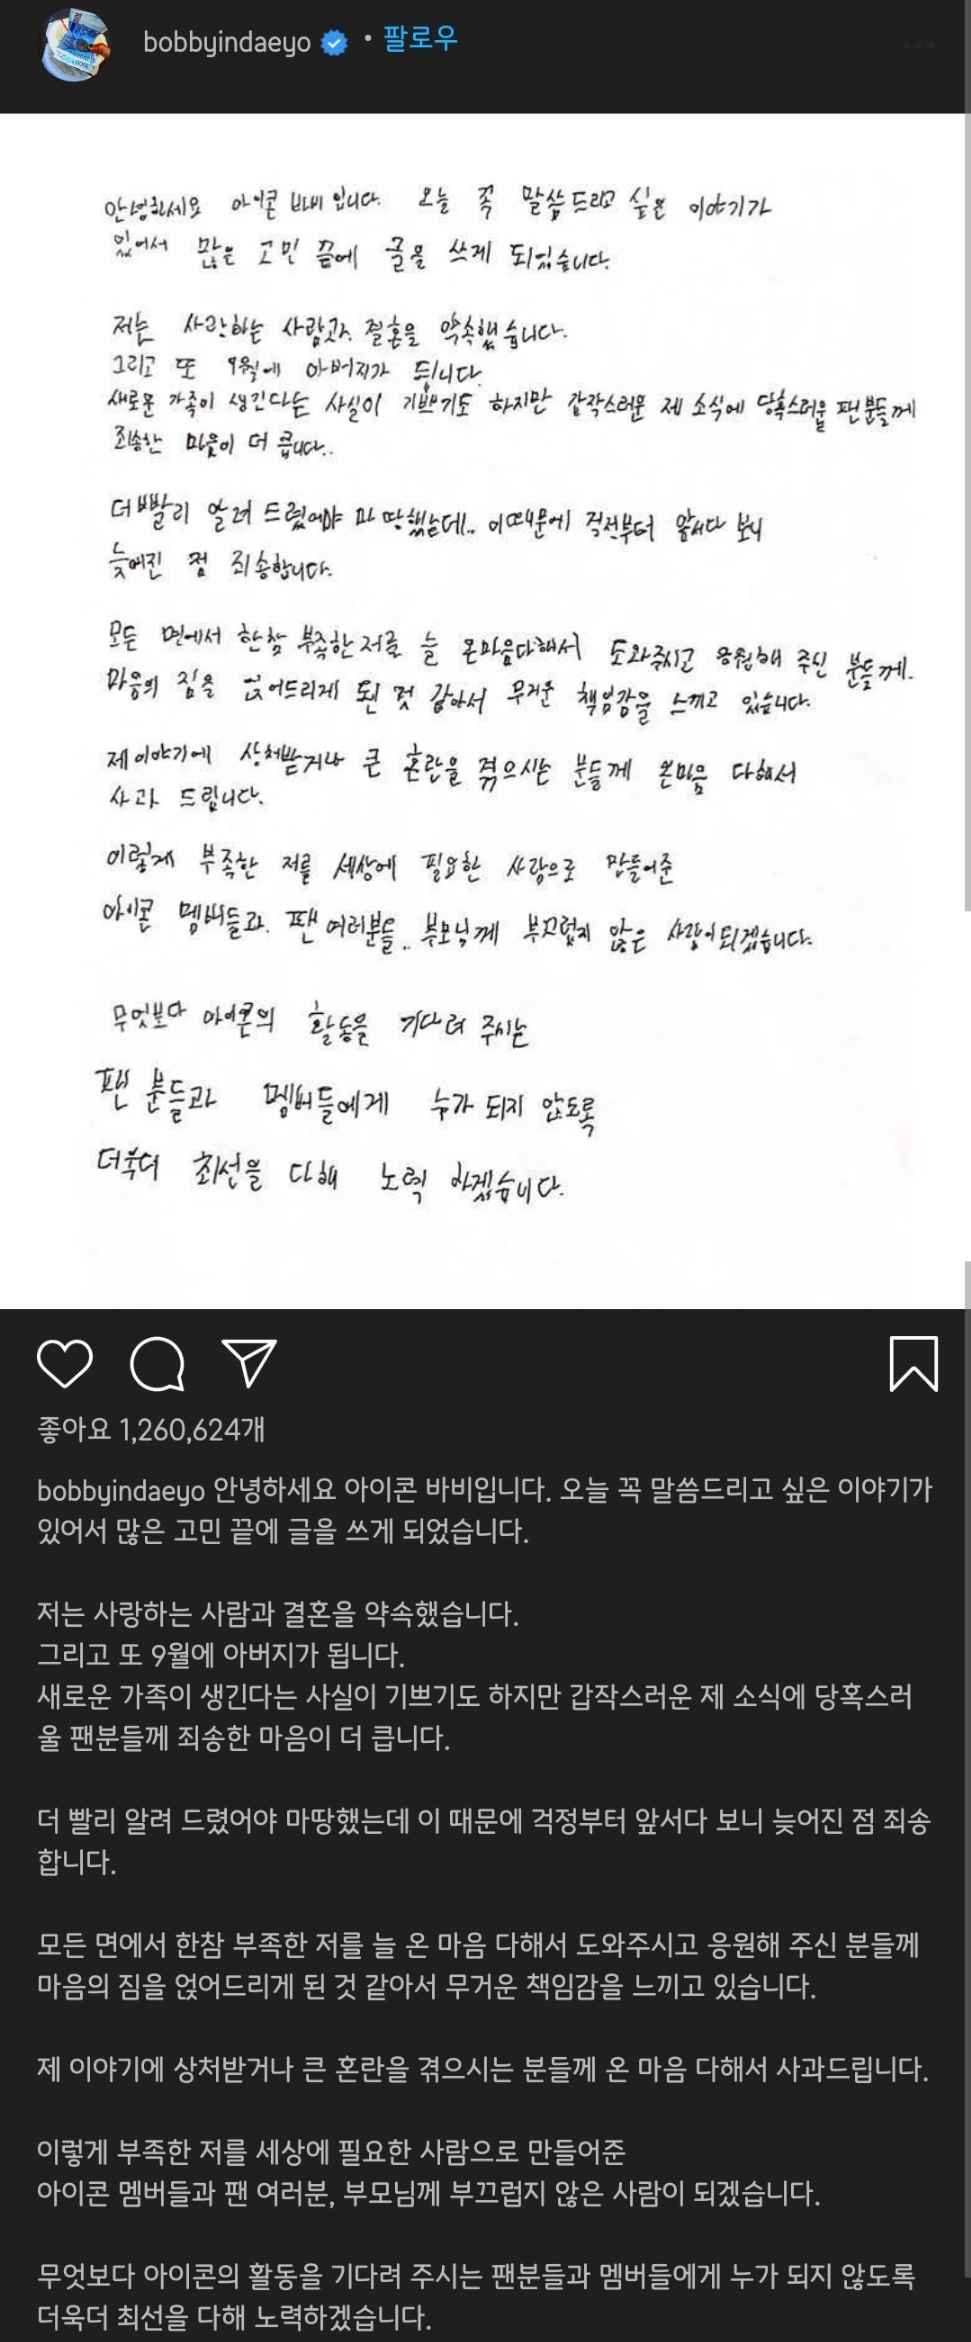 bobbyindaeyo • 팔로우
안녕하세요 아이콘 바비 입니다. 오늘 꼭 말씀드리고 싶은 이야기가
있어서 많은 고민 끝에 글을 쓰게 되었습니다.
저는 사랑하는 사람과 결혼을 약속했습니다.
그리고 또 9월에 아버지가 됩니다.
새로운 가족이 생긴다는 사실이 기쁘기도 하지만 갑작스러운 제 소식에 당혹스러울 팬분들께
죄송한 마음이 더 큽니다..
더 빨리 알려 드렸어야 마땅했는데.. 이 때문에 걱정부터 앞서다 보니
늦어진 점 죄송합니다.
모든 면에서 한참 부족한 저를 늘 온마음다해서 도와주시고 응원해 주신 분들께.
마음의 짐을 얹어드리게 된 것 같아서 무거운 책임감을 느끼고 있습니다.
제 이야기에 상처받거나 큰 혼란을 겪으시는 분들께 온마음 다해서
사과 드립니다.
이렇게 부족한 저를 세상에 필요한 사람으로 만들어준
아이콘 멤버들과. 팬 여러분들.. 부모님께 부끄럽지 않은 사람이 되겠습니다.
무엇보다 아이콘의 활동을 기다려 주시는
팬 분들과 멤버들에게 누가 되지 않도록
더욱더 최선을 다해 노력 하겠습니다.
좋아요 1,260,624개
bobbyindaeyo 안녕하세요 아이콘 바비입니다. 오늘 꼭 말씀드리고 싶은 이야기가
있어서 많은 고민 끝에 글을 쓰게 되었습니다.
저는 사랑하는 사람과 결혼을 약속했습니다.
그리고 또 9월에 아버지가 됩니다.
새로운 가족이 생긴다는 사실이 기쁘기도 하지만 갑작스러운 제 소식에 당혹스러
울 팬분들께 죄송한 마음이 더 큽니다.
더 빨리 알려 드렸어야 마땅했는데 이 때문에 걱정부터 앞서다 보니 늦어진 점 죄송
합니다.
모든 면에서 한참 부족한 저를 늘 온 마음 다해서 도와주시고 응원해 주신 분들께
마음의 짐을 얹어드리게 된 것 같아서 무거운 책임감을 느끼고 있습니다.
제 이야기에 상처받거나 큰 혼란을 겪으시는 분들께 온 마음 다해서 사과드립니다.
이렇게 부족한 저를 세상에 필요한 사람으로 만들어준
아이콘 멤버들과 팬 여러분, 부모님께 부끄럽지 않은 사람이 되겠습니다.
무엇보다 아이콘의 활동을 기다려 주시는 팬분들과 멤버들에게 누가 되지 않도록
더욱더 최선을 다해 노력하겠습니다.